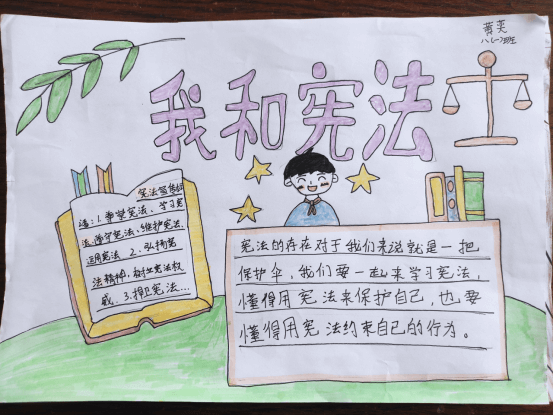 黄奕
八(一)班
我和宪法
宪法宣传标
语：1.尊崇宪法、学习宪
法、遵守宪法、维护宪法、
运用宪法 2.弘扬宪
法精神，树立宪法权
威。3.捍卫宪法...
宪法的存在对于我们来说就是一把
保护伞，我们要一起来学习宪法，
懂得用宪法来保护自己，也要
懂得用宪法约束自己的行为。